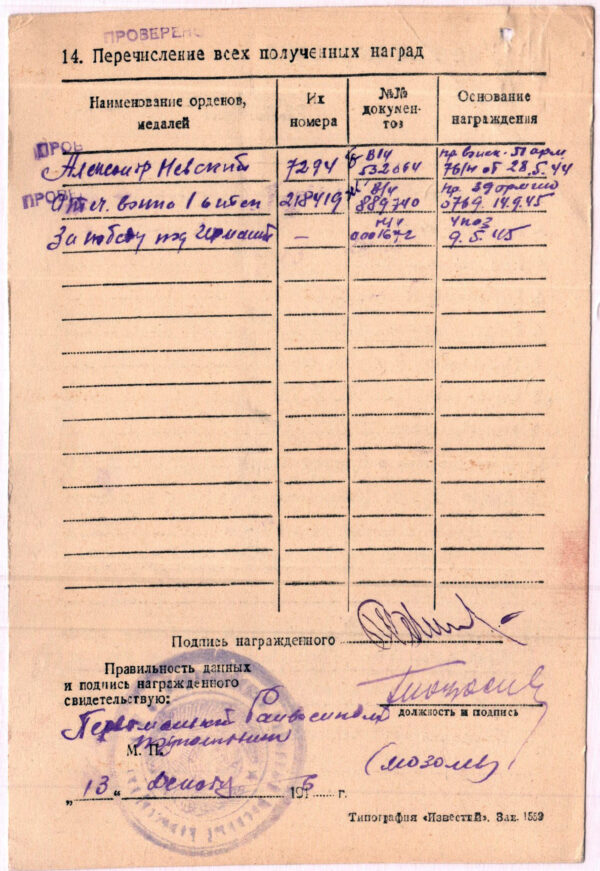 ПРОВЕРЕНО
14. Перечисление всех полученных наград
Наименование орденов, медалей
Их номера
№№ документов
Основание награждения
ПРОВ
Александр Невский 7294 в/ч 532064 пр. войск. 51 арм. 76/н от 28.5.44
ПРОВЕ
Отеч. война 1 степ 218419 в/ч 889740 пр. 39 армии 0769 14.9.45
За победу над Германией — 0001672 указ 9.5.45
Подпись награжденного
Правильность данных
и подпись награжденного
свидетельствую:
должность и подпись
Первомайский Райвоенком
М. П.
„13“ 194 г.
Типография «Известий». Зак. 1552